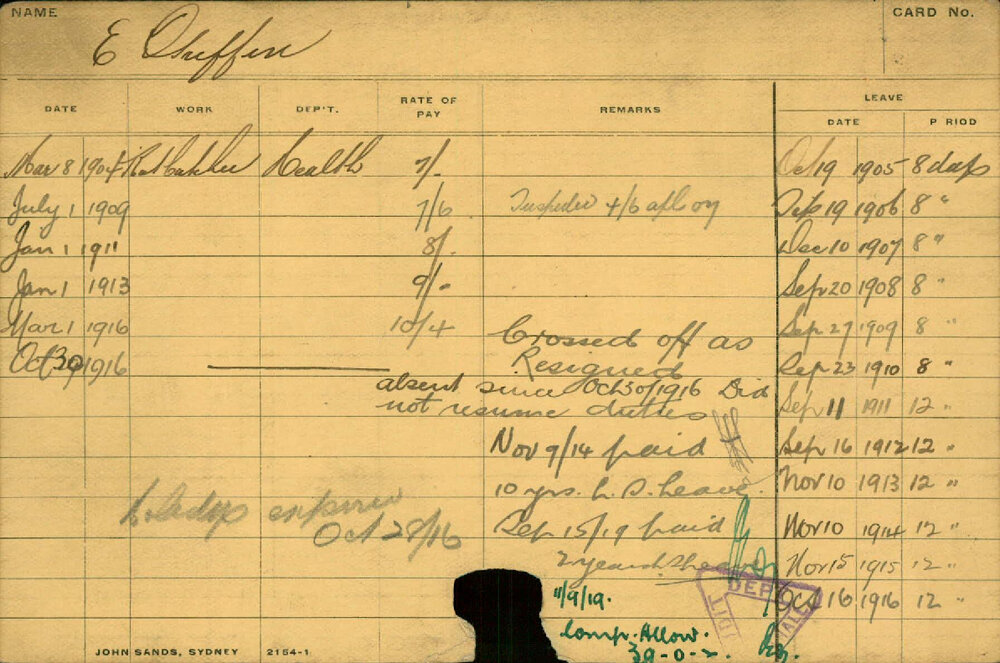 NAME
CARD No.
E Guffen
DATE WORK DEP'T. RATE OF PAY REMARKS LEAVE
DATE P RIOD
Mar 8 1904 Ratcatcher Health 7/- Oct 19 1905 8 days
July 1 1909 7/6 Inspector 4/6 19 1906 8 "
Jan 1 1911 8/- Dec 10 1907 8 "
Jan 1 1913 9/- Sep 20 1908 8 "
Mar 1 1916 10/4 Crossed off as Sep 27 1909 8 "
Oct 30 1916 Resigned Sep 23 1910 8 "
absent since Oct 30/1916 Did
not resume duties Sep 11 1911 12 "
Nov 9/14 paid Sep 16 1912 12 "
10 yrs. L. S. Leave. Nov 10 1913 12 "
Holidays expired
Oct 28/16 Sep 15/19 paid Nov 10 1914 12 "
2 years Nov 15 1915 12 "
11/9/19. Oct 16 1916 12 "
Comp. Allow.
39-0-
DEP
JOHN SANDS, SYDNEY 2154-1